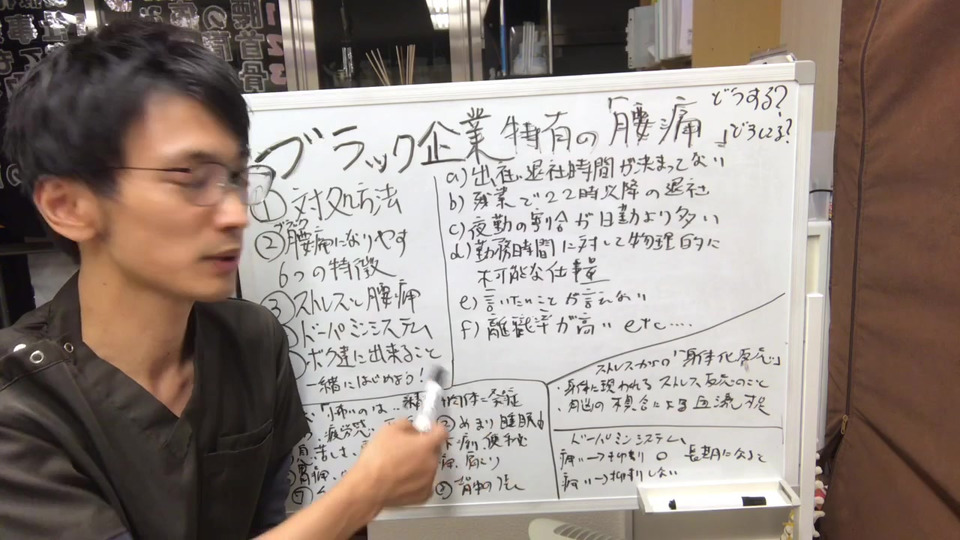 ブラック企業特有の「腰痛」
どうする?
どうしてる?
① 対処方法
② 腰痛になりやす
6つの特徴
③ ストレスと腰痛
ドーパミンシステム
ボク達に出来ること
一緒にはじめよう!
a) 出社、退社時間が決まってない
b) 残業で22時以降の退社
c) 夜勤の割合が日勤より多い
d) 勤務時間に対して物理的に
不可能な仕事量
e) 言いたいことが言えない
f) 離職率が高い etc....
ストレスからの「身体化反応」
・身体に現われるストレス反応のこと
・脳の不具合による血流不足
ドーパミンシステム
痛い→抑制 ○ 長期になると
痛い→抑制しない
怖いのは、
疲労
② あまり睡眠も
便秘